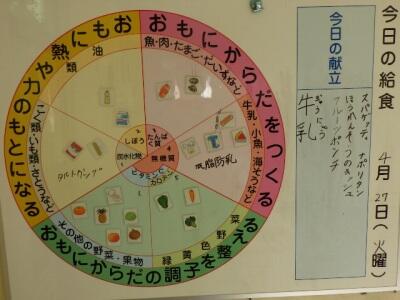 今日の給食
4月27日(火曜)
今日の献立
スパゲッティ ナポリタン
ほうれんそうのキッシュ
フルーツポンチ
ぎゅうにゅう
牛乳
おもにからだをつくる
魚・肉・たまご・だいずなど
牛乳・小魚・海そうなど
おもにからだの調子を整える
緑黄色野菜
その他の野菜・果物
おもに熱や力のもとになる
油類
こく類・いも類・さとうなど
しぼう
たんぱく質
炭水化物
無機質
ビタミンC
カロテン
脱脂粉乳
タルトカップ